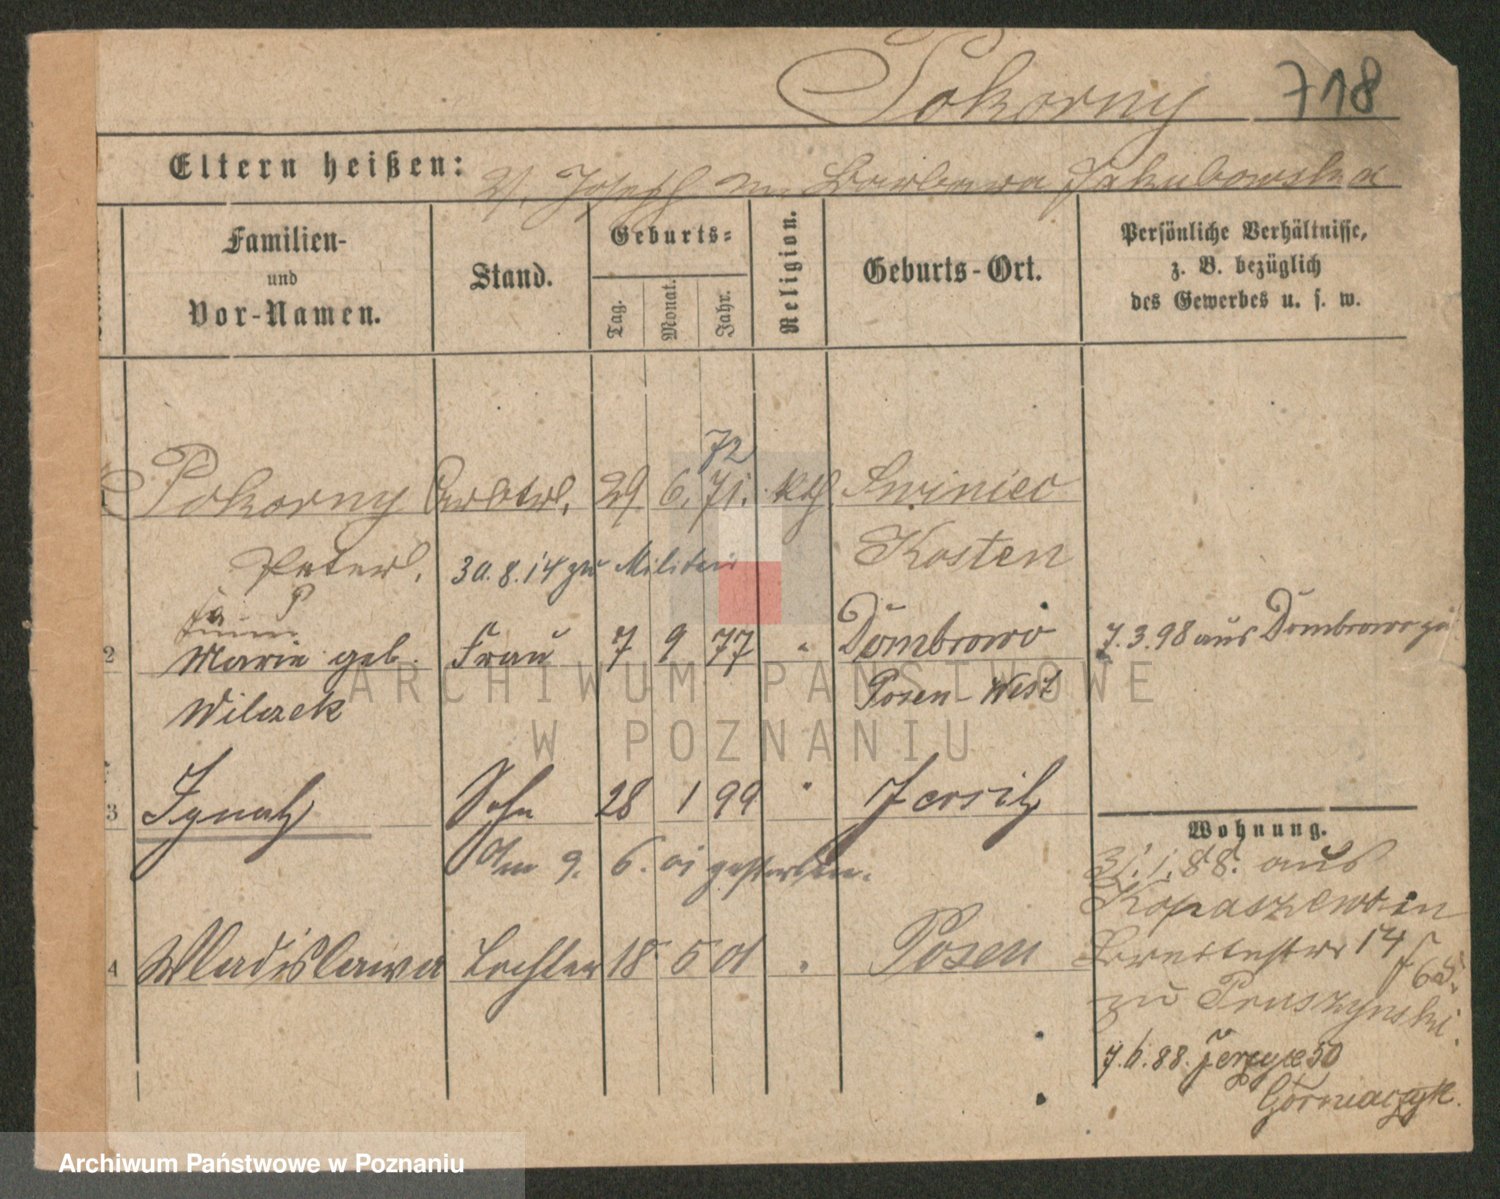 Pokorny 718
Eltern heißen: V. Joseph M. Barbara Jakubowska
Familien- und Vor-Namen.
Stand.
Geburts-
Tag. Monat. Jahr.
Religion.
Geburts-Ort.
Persönliche Verhältnisse, z. B. bezüglich des Gewerbes u. s. w.
72
Pokorny Arbtr. 29. 6. 71. kth. Swiniec
Peter. 30.8.14 zu Militär Kosten
2 Marie geb. Frau 7 9 77 " Dombrowo 7.3.98 aus Dombrowo
Wilczek Posen-West
3 Ignatz Sohn 28 1 99 " Jersitz
Am 9. 6. 01 gestorben.
4 Wladislawa Tochter 18 5 01 " Posen
Wohnung.
31.1.88. aus
Kopaszewo in
Breitestr 14
f 65.
zu Pruszynski.
7.6.88. Jerzyce 50
Górniaczyk.
ARCHIWUM PAŃSTWOWE
W POZNANIU
Archiwum Państwowe w Poznaniu